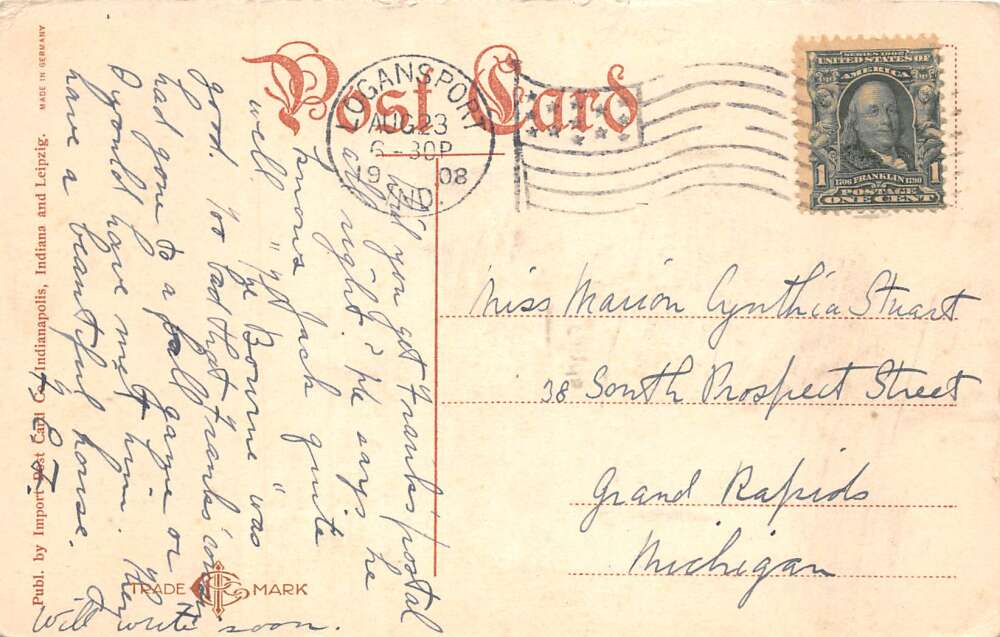 Post Card
LOGANSPORT
AUG 23
6-30P
1908
IND.
SERIES 1902
UNITED STATES OF
AMERICA
1706 FRANKLIN 1790
1 POSTAGE 1
ONE CENT
Miss Marion Cynthia Stuart
38 South Prospect Street
Grand Rapids
Michigan
Did you get Frank's postal
all right? He says he
knows Jack quite
well. "Ye Bourne" was
good. Too bad that Frank's
had gone to a ball game or
I would have met him. They
have a beautiful house.
Will write soon.
TRADE MARK
MADE IN GERMANY
Publ. by Import Post Card Co., Indianapolis, Indiana and Leipzig.